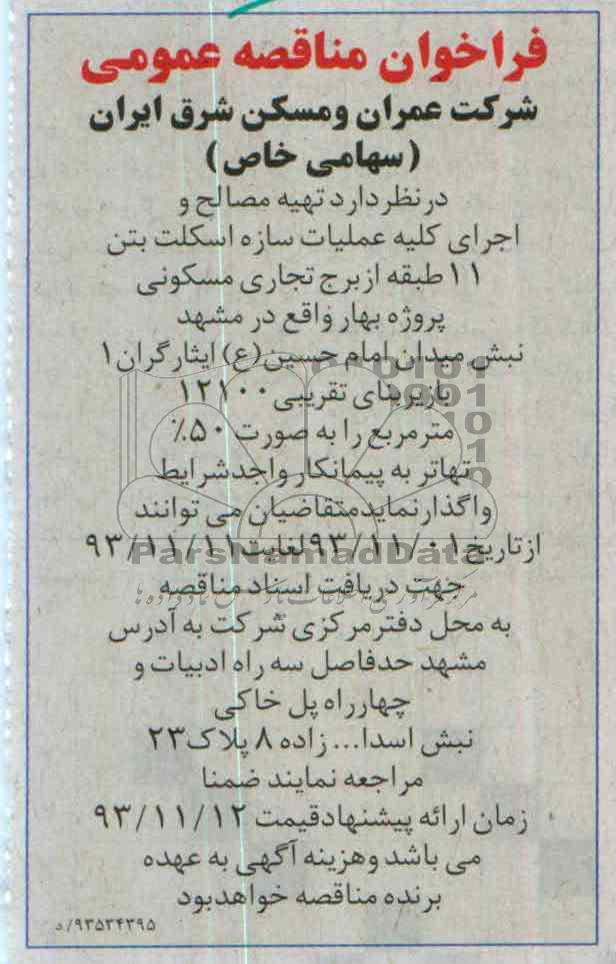 فراخوان مناقصه عمومی
شرکت عمران ومسکن شرق ایران
(سهامی خاص)
درنظردارد تهیه مصالح و
اجرای کلیه عملیات سازه اسکلت بتن
۱۱ طبقه ازبرج تجاری مسکونی
پروژه بهار واقع در مشهد
نبش میدان امام حسین(ع) ایثارگران۱
بازیربنای تقریبی ۱۲۱۰۰
مترمربع را به صورت ۵۰٪
تهاتر به پیمانکار واجدشرایط
واگذارنمایدمتقاضیان می توانند
ازتاریخ ۹۳/۱۱/۰۱ لغایت ۹۳/۱۱/۱۱
ParsNamadData
جهت دریافت اسناد مناقصه
به محل دفترمرکزی شرکت به آدرس
مشهد حدفاصل سه راه ادبیات و
چهارراه پل خاکی
نبش اسدا... زاده ۸ پلاک۲۳
مراجعه نمایند ضمنا
زمان ارائه پیشنهادقیمت ۹۳/۱۱/۱۲
می باشد وهزینه آگهی به عهده
برنده مناقصه خواهدبود
۹۳۵۳۴۳۹۵/د